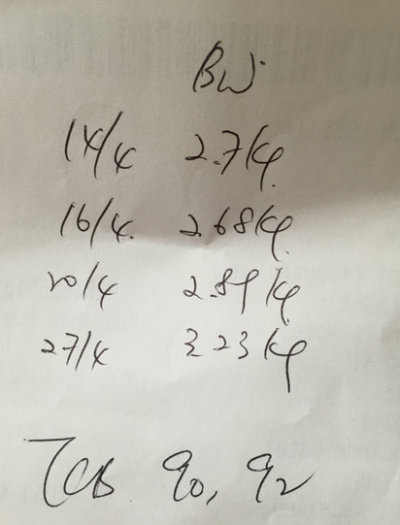 BW
14/4 2.7kg
16/4. 2.68kg
20/4 2.89kg
27/4 3.23kg
TCB 90, 92